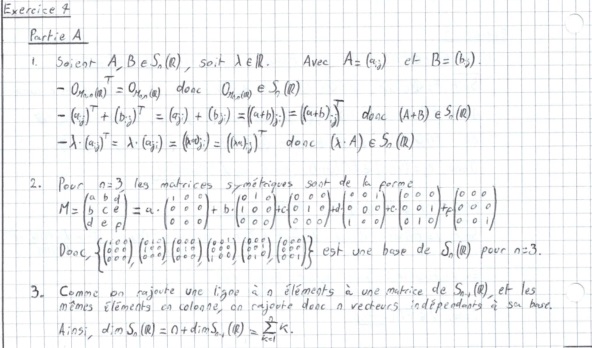 Exercice 7
Partie A
1. Soient A, B ∈ Sₙ(ℝ), soit λ ∈ ℝ. Avec A = (aᵢⱼ) et B = (bᵢⱼ).
- O_{Mₙ,ₙ(ℝ)}ᵀ = O_{Mₙ,ₙ(ℝ)} donc O_{Mₙ,ₙ(ℝ)} ∈ Sₙ(ℝ)
- (aᵢⱼ)ᵀ + (bᵢⱼ)ᵀ = (aⱼᵢ) + (bⱼᵢ) = ((a+b)ⱼᵢ) = ((a+b)ᵢⱼ)ᵀ donc (A+B) ∈ Sₙ(ℝ)
- λ·(aᵢⱼ)ᵀ = λ·(aⱼᵢ) = ((λa)ⱼᵢ) = ((λa)ᵢⱼ)ᵀ donc (λ·A) ∈ Sₙ(ℝ)
2. Pour n=3, les matrices symétriques sont de la forme
M = (a b d / b c e / d e f) = a·(1 0 0 / 0 0 0 / 0 0 0) + b·(0 1 0 / 1 0 0 / 0 0 0) + c·(0 0 0 / 0 1 0 / 0 0 0) + d·(0 0 1 / 0 0 0 / 1 0 0) + e·(0 0 0 / 0 0 1 / 0 1 0) + f·(0 0 0 / 0 0 0 / 0 0 1)
Donc, {(1 0 0 / 0 0 0 / 0 0 0), (0 1 0 / 1 0 0 / 0 0 0), (0 0 0 / 0 1 0 / 0 0 0), (0 0 1 / 0 0 0 / 1 0 0), (0 0 0 / 0 0 1 / 0 1 0), (0 0 0 / 0 0 0 / 0 0 1)} est une base de Sₙ(ℝ) pour n=3.
3. Comme on rajoute une ligne à n éléments à une matrice de Sₙ₋₁(ℝ), et les
mêmes éléments en colonne, on rajoute donc n vecteurs indépendants à sa base.
Ainsi, dim Sₙ(ℝ) = n + dim Sₙ₋₁(ℝ) = ∑ₖ₌₁ⁿ k.